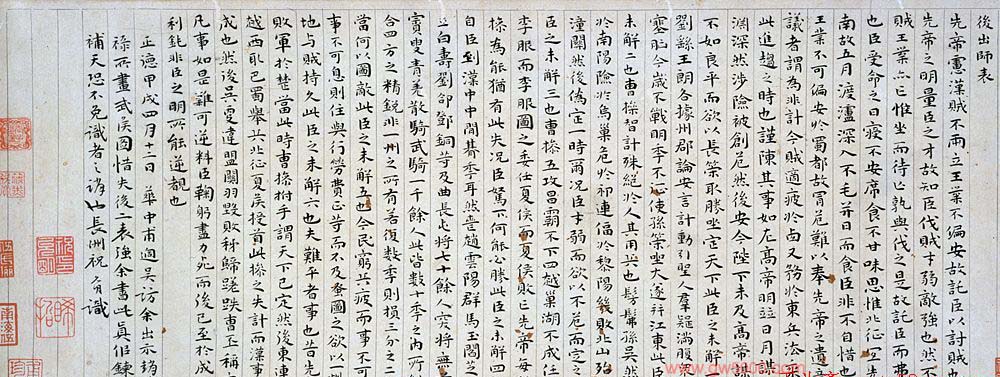 後出師表
先帝慮漢賊不兩立王業不偏安故託臣以討賊
先帝之明量臣之才故知臣伐賊才弱敵強也然不
賊王業亦亡惟坐而待亡孰與伐之是故託臣而弗
也臣受命之日寢不安席食不甘味思惟北征宜先
南故五月渡瀘深入不毛并日而食臣非不自惜也
王業不可偏安於蜀都故冒危難以奉先帝之遺
議者謂為非計今賊適疲於西又務於東兵法
此進趨之時也謹陳其事如左高帝明並日月謀
淵深然涉險被創危然後安今陛下未及高帝謀
不如良平而欲以長策取勝坐定天下此臣之未解一
劉繇王朗各據州郡論安言計動引聖人羣疑滿腹
塞胸今歲不戰明年不征使孫策坐大遂并江東此臣
未解二也曹操智計殊絕於人其用兵也髣髴孫吳然
於南陽險於烏巢危於祁連偪於黎陽幾敗北山殆
潼關然後偽定一時爾況臣才弱而欲以不危而定之
臣之未解三也曹操五攻昌霸不下四越巢湖不成任
李服而李服圖之委任夏侯而夏侯敗亡先帝每
操為能猶有此失況臣駑下何能必勝此臣之未解四
自臣到漢中中間朞年耳然喪趙雲陽群馬玉閻芝
立白壽劉郃鄧銅等及曲長屯將七十餘人突將無
賨叟青羌散騎武騎一千餘人此皆數十年之內所
合四方之精銳非一州之所有若復數年則損三分之二
當何以圖敵此臣之未解五也今民窮兵疲而事不可
事不可息則住與行勞費正等而不及蚤圖之欲以一州
地与賊持久此臣之未解六也夫難平者事也昔先
敗軍於楚當此時曹操拊手謂天下已定然後東連
越西取巴蜀舉兵北征夏侯授首此操之失計而漢事
成也然後吳更違盟關羽毀敗秭歸蹉跌曹丕稱
凡事如是難可逆料臣鞠躬盡力死而後已至於成
利鈍非臣之明所能逆覩也
正德甲戌四月十二日華中甫過吳訪余出示趙
祿所畫武侯圖惜失後二表強余書此真俗鍊
補天恐不免識者之誚也長洲祝允明識